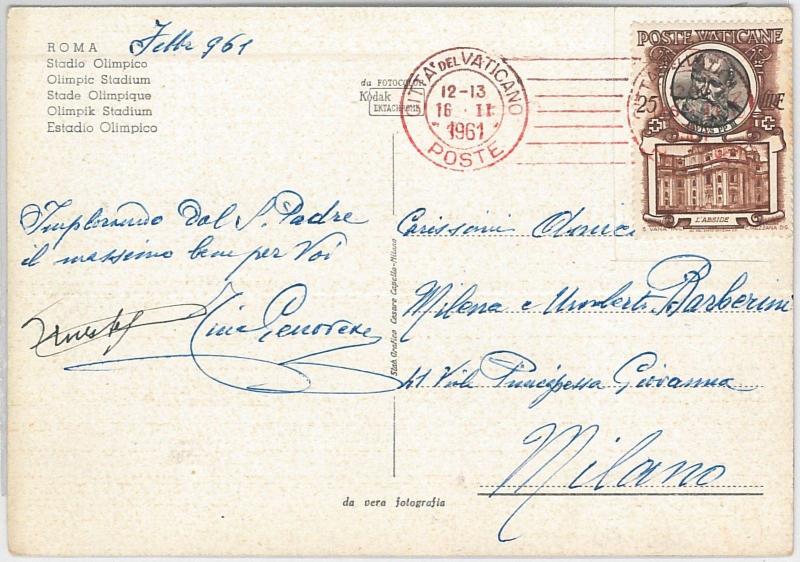 ROMA
Stadio Olimpico
Olimpic Stadium
Stade Olimpique
Olimpik Stadium
Estadio Olimpico
Febbr 961
da FOTOCOLOR
Kodak
EKTACHROME
CITTA' DEL VATICANO
12-13
16 II
1961
POSTE
POSTE VATICANE
25 LIRE
L'ABSIDE
Implorando dal S. Padre
il massimo bene per Voi
Tina Genovese
Stab. Grafico Cesare Capello-Milano
Carissimi Amici
Milena e Umberto Barberini
41 Viale Principessa Giovanna
Milano
da vera fotografia